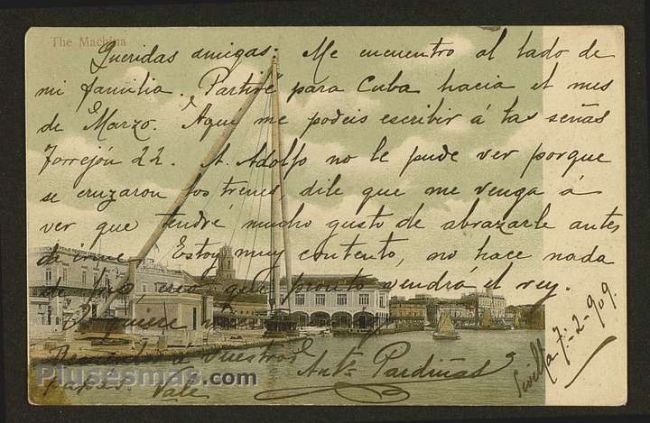 The Machina
Queridas amigas: Me encuentro al lado de
mi familia, Partiré para Cuba hacia el mes
de Marzo. Aqui me podeis escribir á las señas
Torrejón 22. A Adolfo no le pude ver porque
se cruzaron los trenes dile que me venga á
ver que tendre mucho gusto de abrazarle antes
de irme. Estoy muy contento, no hace nada
de frio creo que pronto vendrá el rey.
quiere
á vuestros
Antº Pardiñas
Vale
Sevilla 7-2-909.
Plusesmas.com